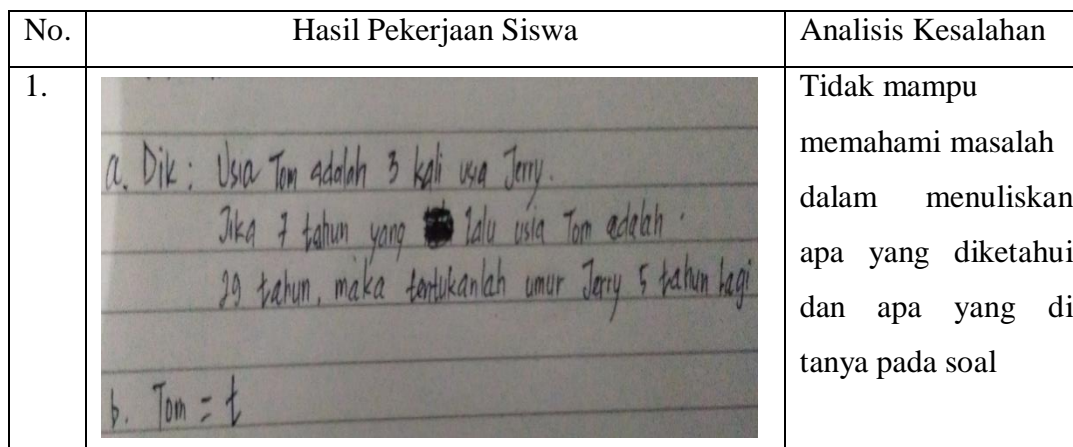 No. Hasil Pekerjaan Siswa Analisis Kesalahan
1.
a. Dik : Usia Tom adalah 3 kali usia Jerry.
Jika 7 tahun yang lalu usia Tom adalah
29 tahun, maka tentukanlah umur Jerry 5 tahun lagi
b. Tom = t
Tidak mampu
memahami masalah
dalam menuliskan
apa yang diketahui
dan apa yang di
tanya pada soal